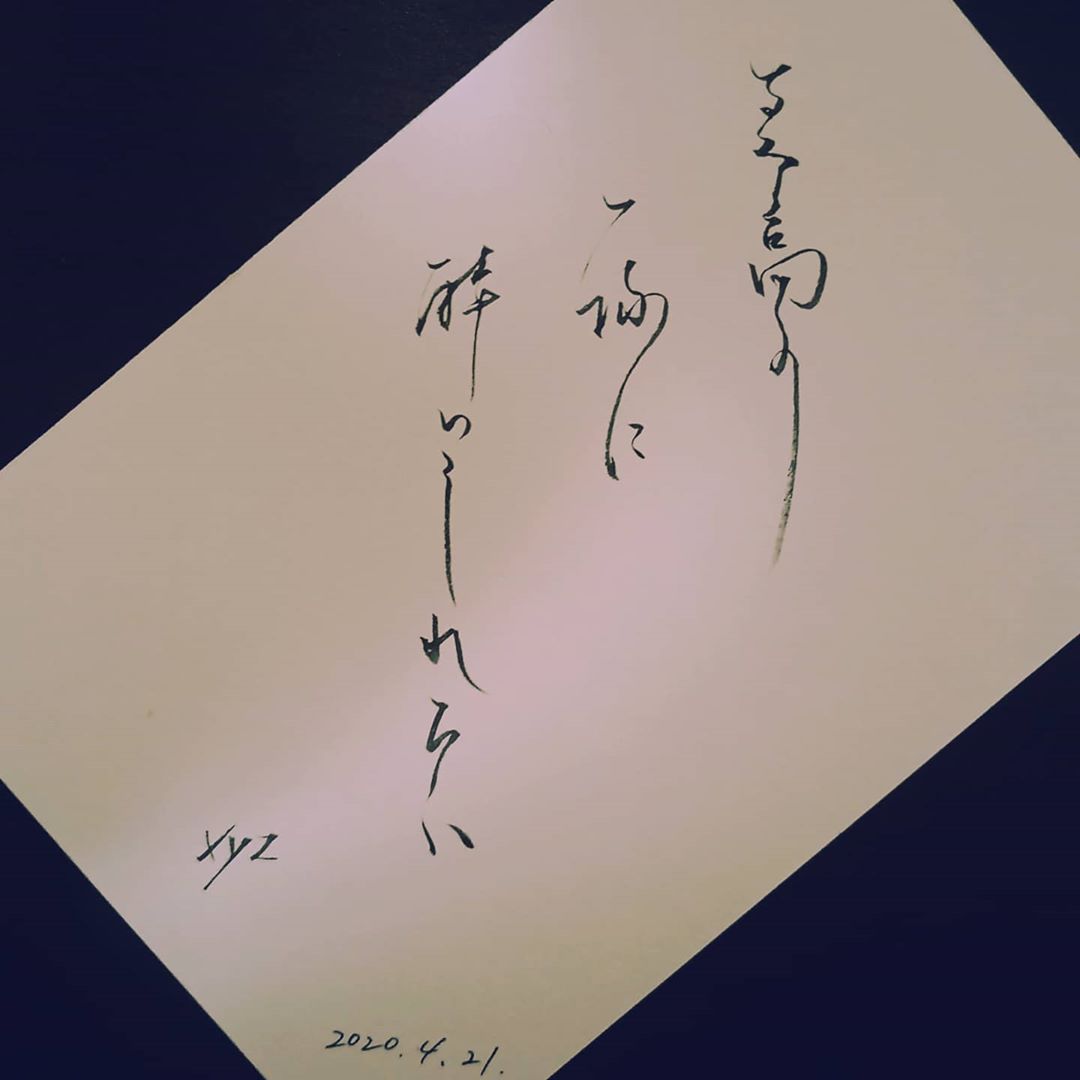 至高の
に
酔いしれたい
XYZ
2020.4.21.